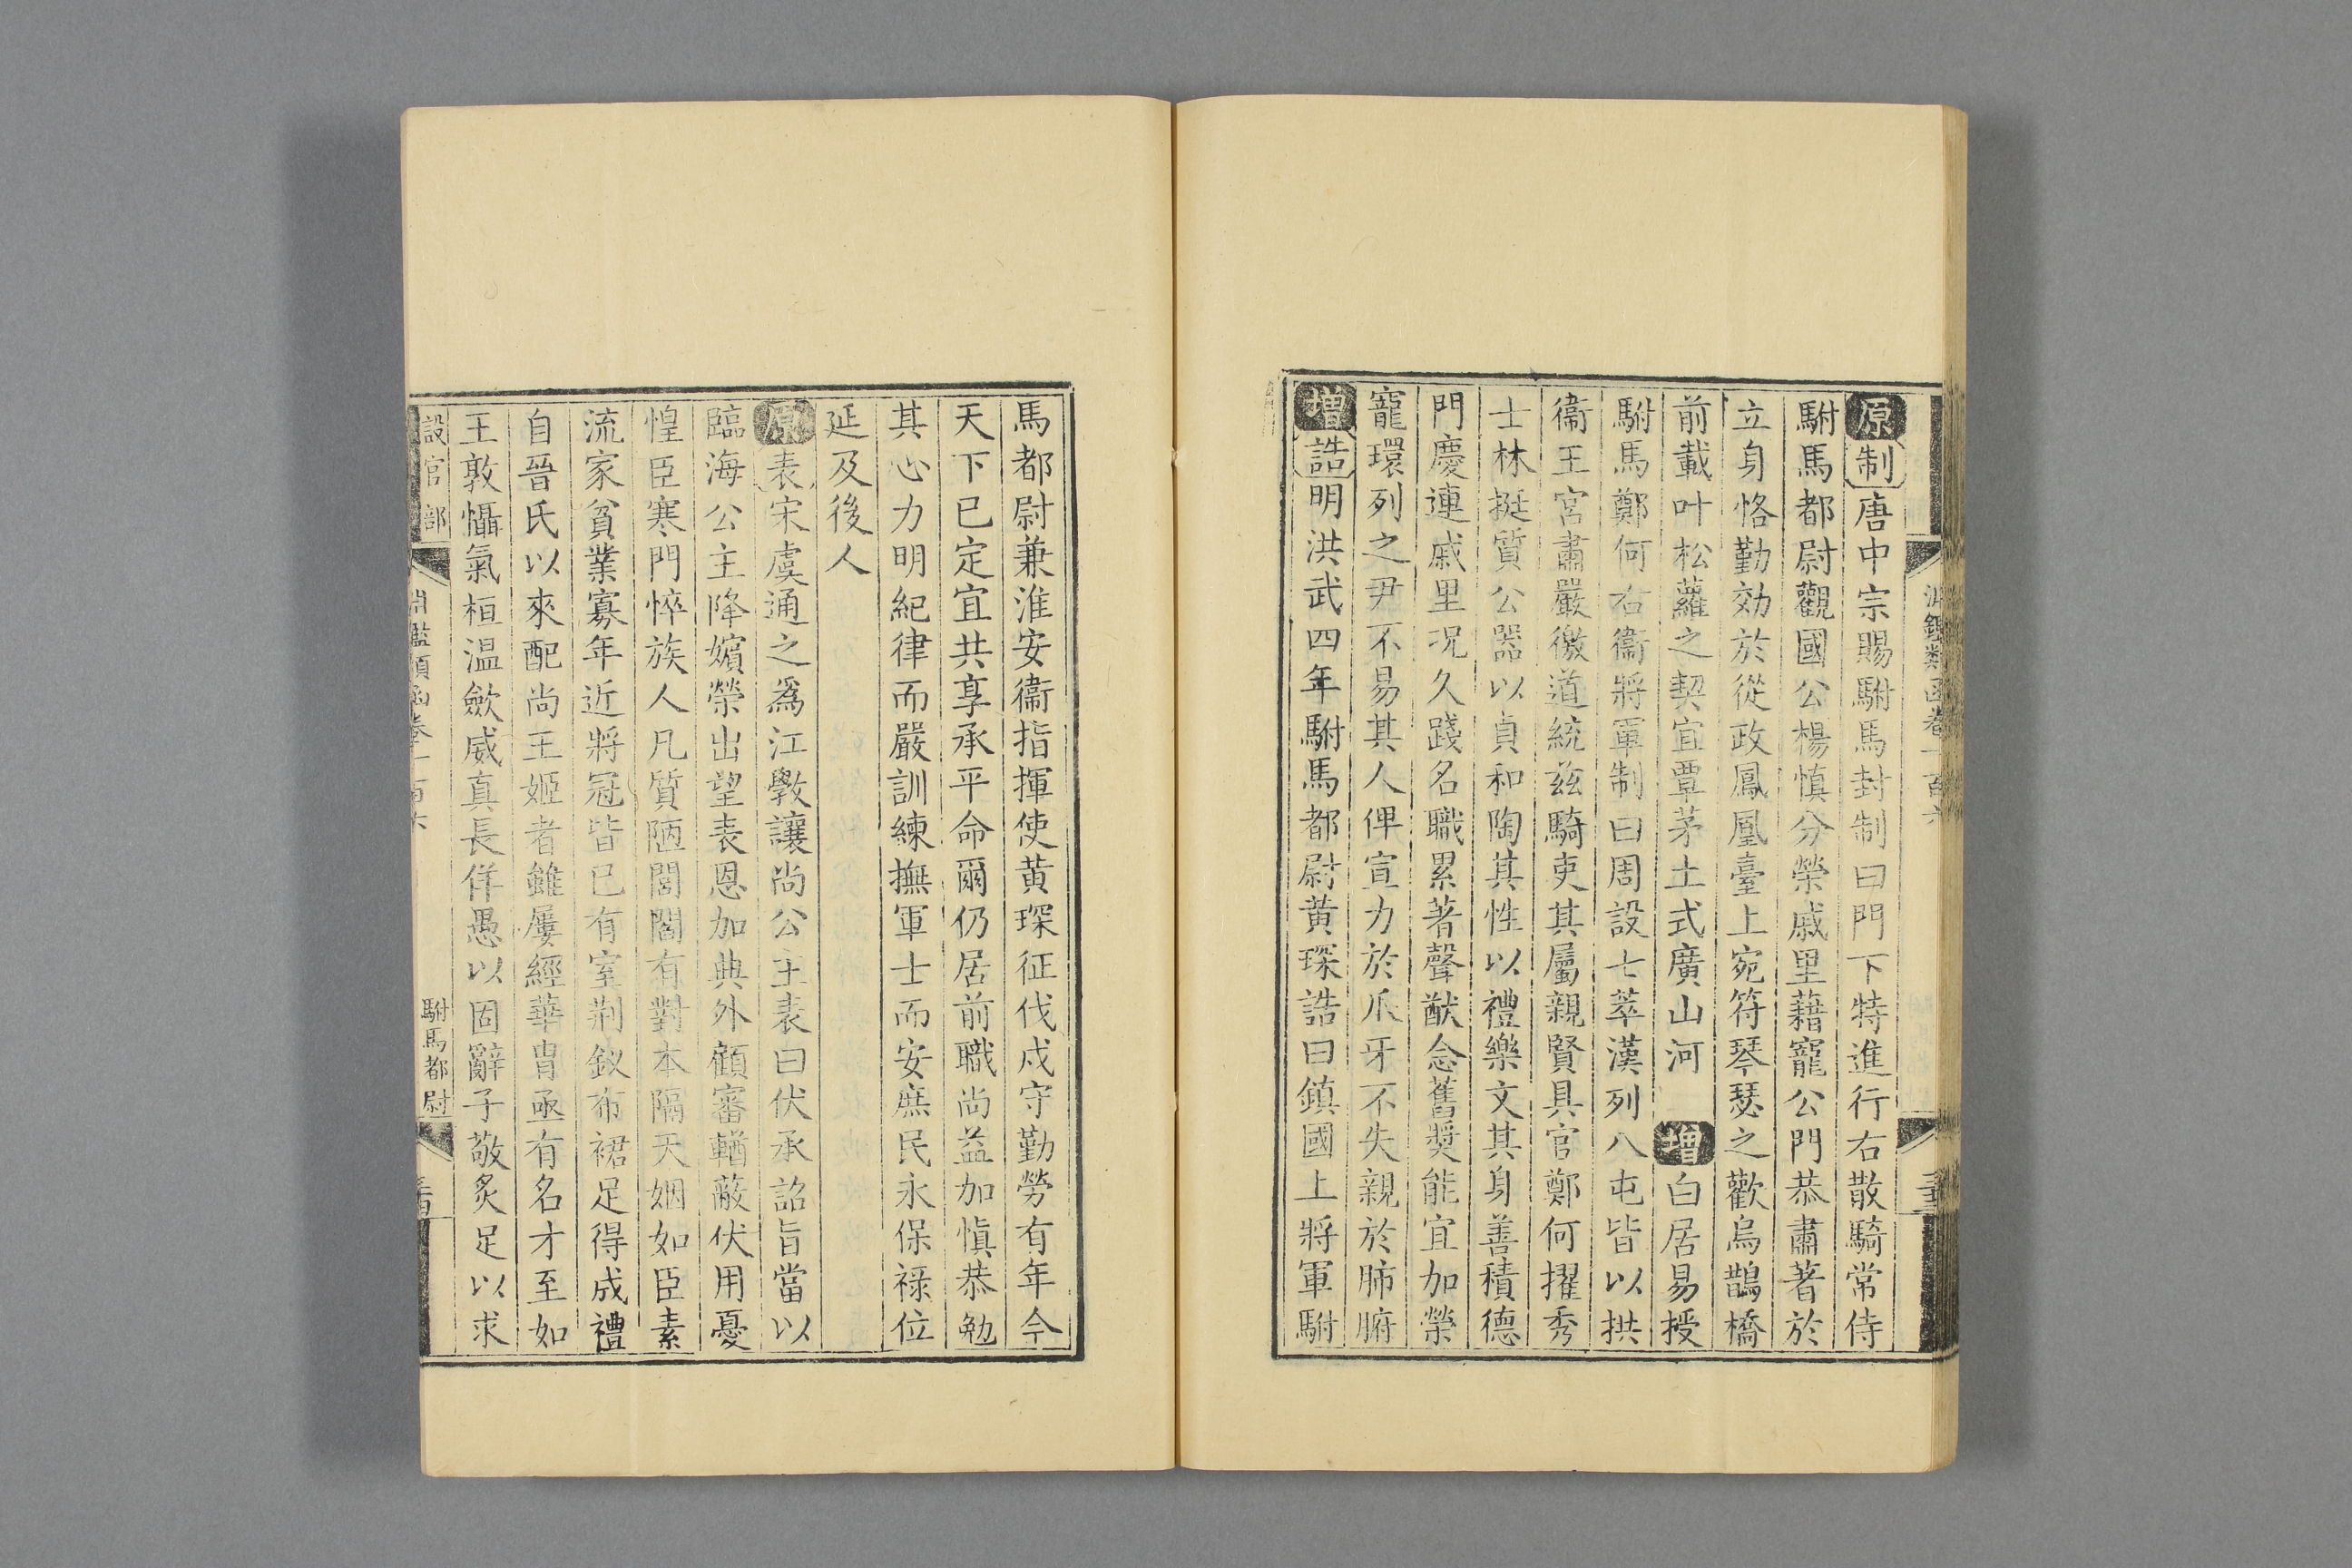 原制唐中宗賜駙馬封制曰門下特進行右散騎常侍
駙馬都尉觀國公楊慎分榮戚里藉寵公門恭肅著於
立身恪勤効於從政鳳凰臺上宛符琴瑟之歡烏鵲橋
前載叶松蘿之契宜覃茅土式廣山河 增白居易授
駙馬鄭何右衞將軍制曰周設七萃漢列八屯皆以拱
衞王宮肅嚴徼道統兹騎吏其屬親賢具官鄭何擢秀
士林挺質公器以貞和陶其性以禮樂文其身善積德
門慶連戚里況久踐名職累著聲猷念舊奬能宜加榮
寵環列之尹不易其人俾宣力於爪牙不失親於肺腑
增誥明洪武四年駙馬都尉黄琛誥曰鎮國上將軍駙
馬都尉兼淮安衞指揮使黄琛征伐戍守勤勞有年今
天下已定宜共享承平命爾仍居前職尚益加慎恭勉
其心力明紀律而嚴訓練撫軍士而安庶民永保祿位
延及後人
原表宋虞通之爲江斆讓尚公主表曰伏承詔旨當以
臨海公主降嬪榮出望表恩加典外顧審輶蔽伏用憂
惶臣寒門悴族人凡質陋閭閻有對本隔天姻如臣素
流家貧業寡年近將冠皆已有室荆釵布裙足得成禮
自晉氏以來配尚王姬者雖屢經華胄亟有名才至如
王敦懾氣桓温斂威真長佯愚以固辭子敬炙足以求
設官部
淵鑑類函卷一百六
駙馬都尉